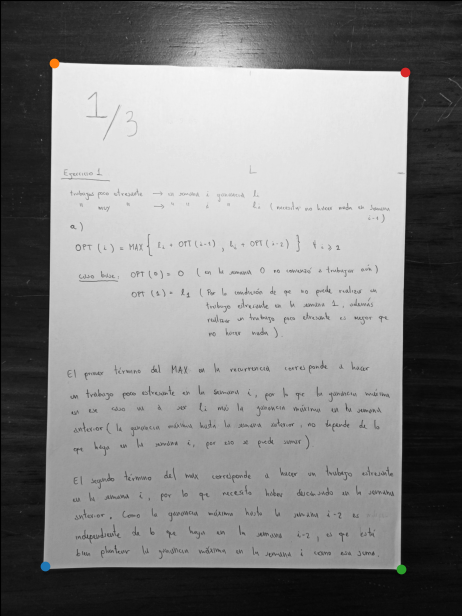 1/3
Ejercicio 1
trabajos poco estresante → en semana i ganancia li
" muy " → " " i " ti (necesitar no hacer nada en semana
i-1)
a)
OPT(i) = MAX { li + OPT(i-1), ti + OPT(i-2) } ∀ i > 1
Caso base: OPT(0) = 0 (en la semana 0 no comenzó a trabajar aún)
OPT(1) = l1 (Por la condición de que no puede realizar un
trabajo estresante en la semana 1, además
realizar un trabajo poco estresante es mejor que
no hacer nada).
El primer término del MAX en la recurrencia corresponde a hacer
un trabajo poco estresante en la semana i, por lo que la ganancia máxima
en ese caso va a ser li más la ganancia máxima en la semana
anterior (la ganancia máxima hasta la semana anterior, no depende de lo
que haga en la semana i, por eso se puede sumar)
El segundo término del max corresponde a hacer un trabajo estresante
en la semana i, por lo que necesito haber descansado en la semana
anterior. Como la ganancia máxima hasta la semana i-2 es
independiente de lo que haga en la semana i-2, es que está
bien plantear la ganancia máxima en la semana i como esa suma.